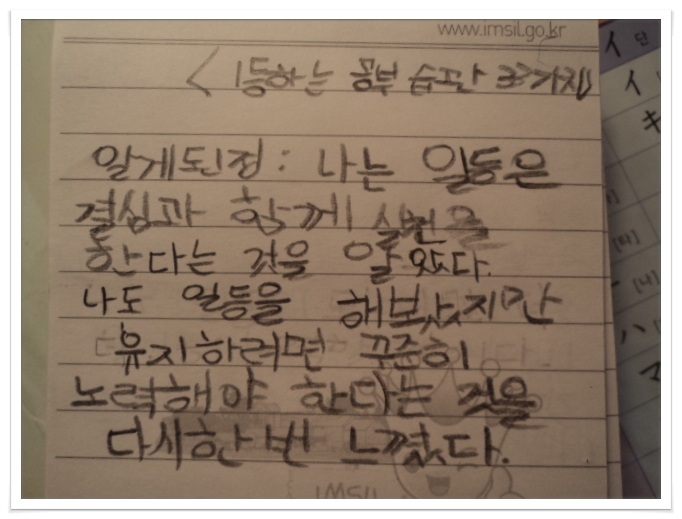 www.imsil.go.kr
< 1등하는 공부 습관 33가지>
알게된점 : 나는 일등은
결심과 함께 실천을
한다는 것을 알았다.
나도 일등을 해보았지만
유지하려면 꾸준히
노력해야 한다는 것을
다시한번 느꼈다.
IMSIL
イ 단
イ
キ
[따]
[나]
ハ
マ